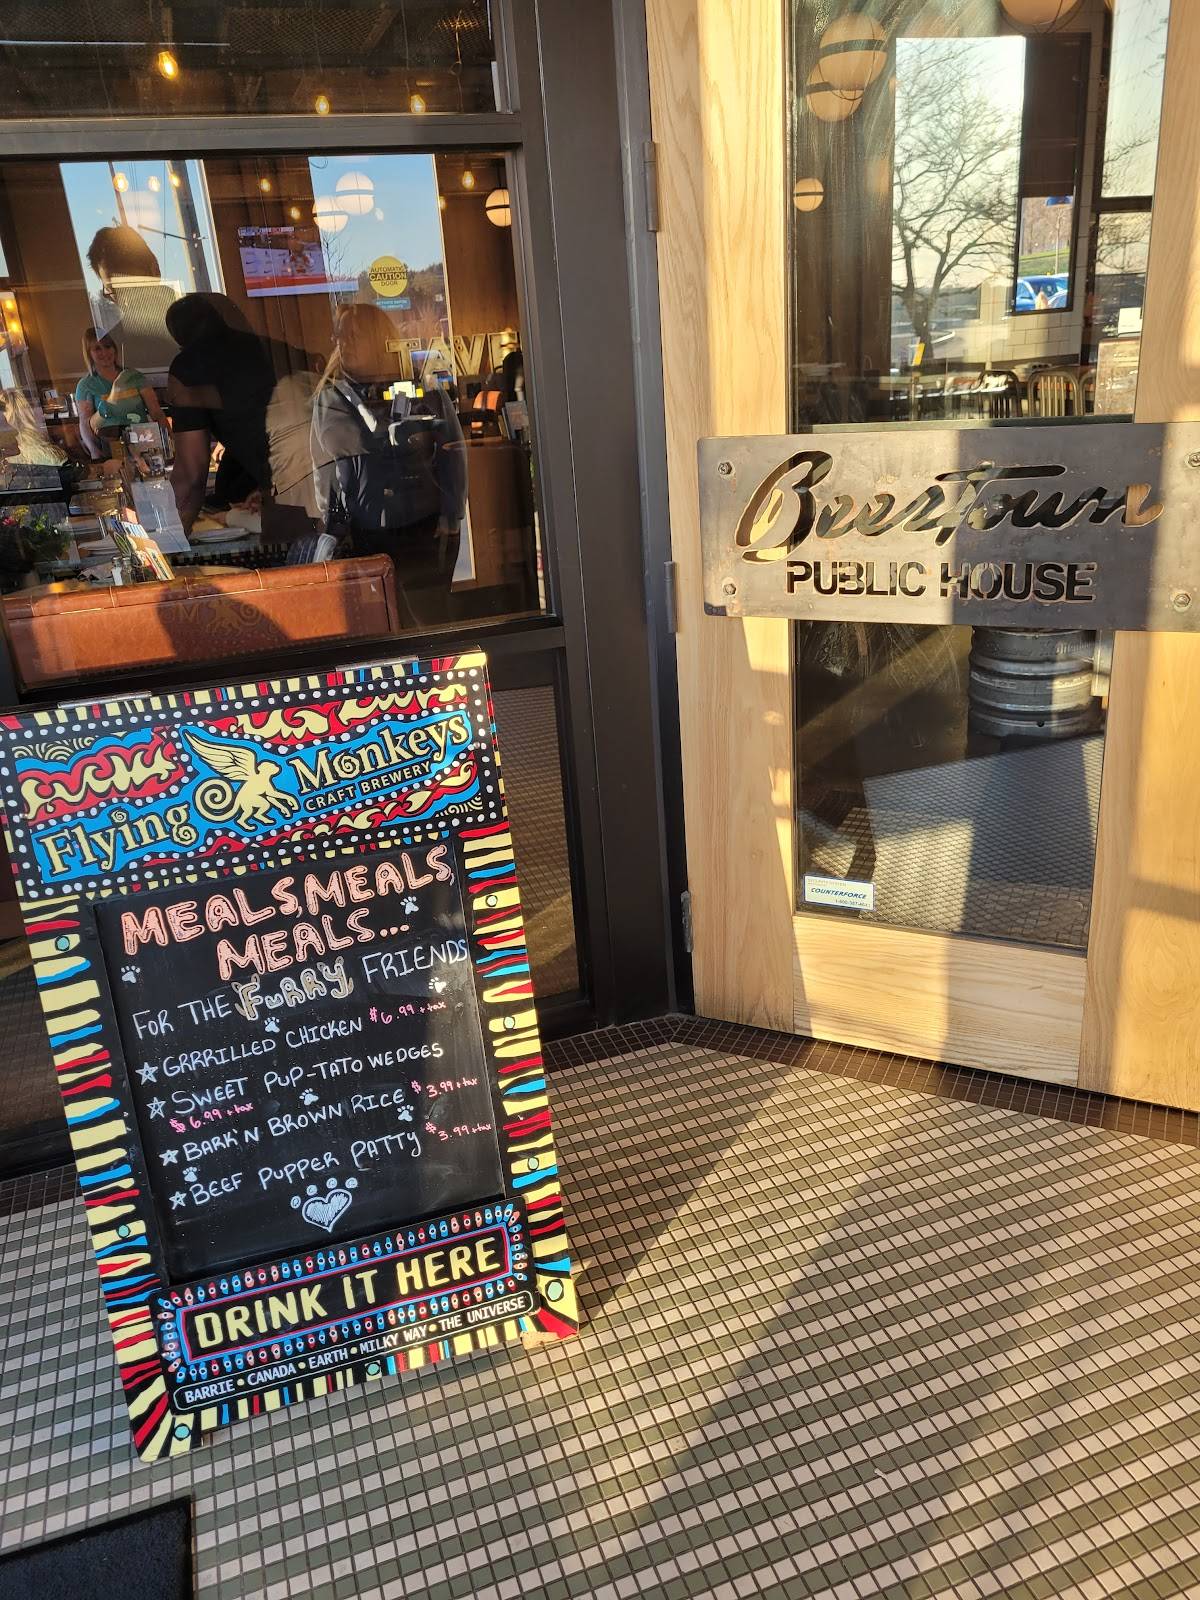 AUTOMATIC
CAUTION
DOOR
TAVE
BeerTown
PUBLIC HOUSE
COUNTERFORCE
Flying Monkeys
CRAFT BREWERY
MEALS, MEALS,
MEALS...
FOR THE FURRY FRIENDS
GRRRILLED CHICKEN $6.99 + tax
SWEET PUP-TATO WEDGES
$6.99 + tax
BARK'N BROWN RICE $3.99 + tax
BEEF PUPPER PATTY $3.99 + tax
DRINK IT HERE
BARRIE • CANADA • EARTH • MILKY WAY • THE UNIVERSE